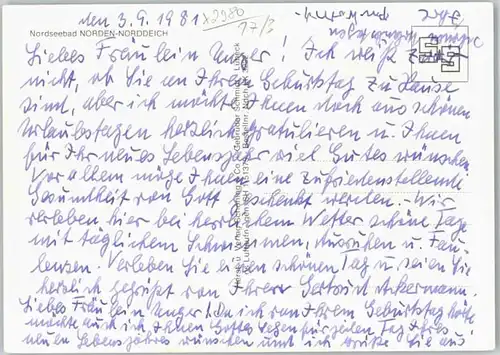 den 3.9.1981
x2980
17/3
Nordseebad NORDEN-NORDDEICH
Liebes Fräulein Unger! Ich weiß zwar
nicht, ob Sie an Ihrem Geburtstag zu Hause
sind, aber ich möchte Ihnen doch aus schönen
Urlaubstagen herzlich gratulieren u. Ihnen
für Ihr neues Lebensjahr viel Gutes wünschen.
Vor allem möge Ihnen eine zufriedenstellende
Gesundheit von Gott geschenkt werden. Wir
verleben hier bei herrlichem Wetter schöne Tage
mit täglichem Schwimmen, Ausruhen u. Fau-
lenzen. Verleben Sie einen schönen Tag u. seien Sie
herzlich gegrüßt von Ihrer Gertrud Ackermann.
Liebes Fräulein Unger! Da ich von Ihrem Geburtstag hörte
möchte auch ich Ihnen Gottes Segen für jeden Tag Ihres
neuen Lebensjahres wünschen und ich grüße Sie aus